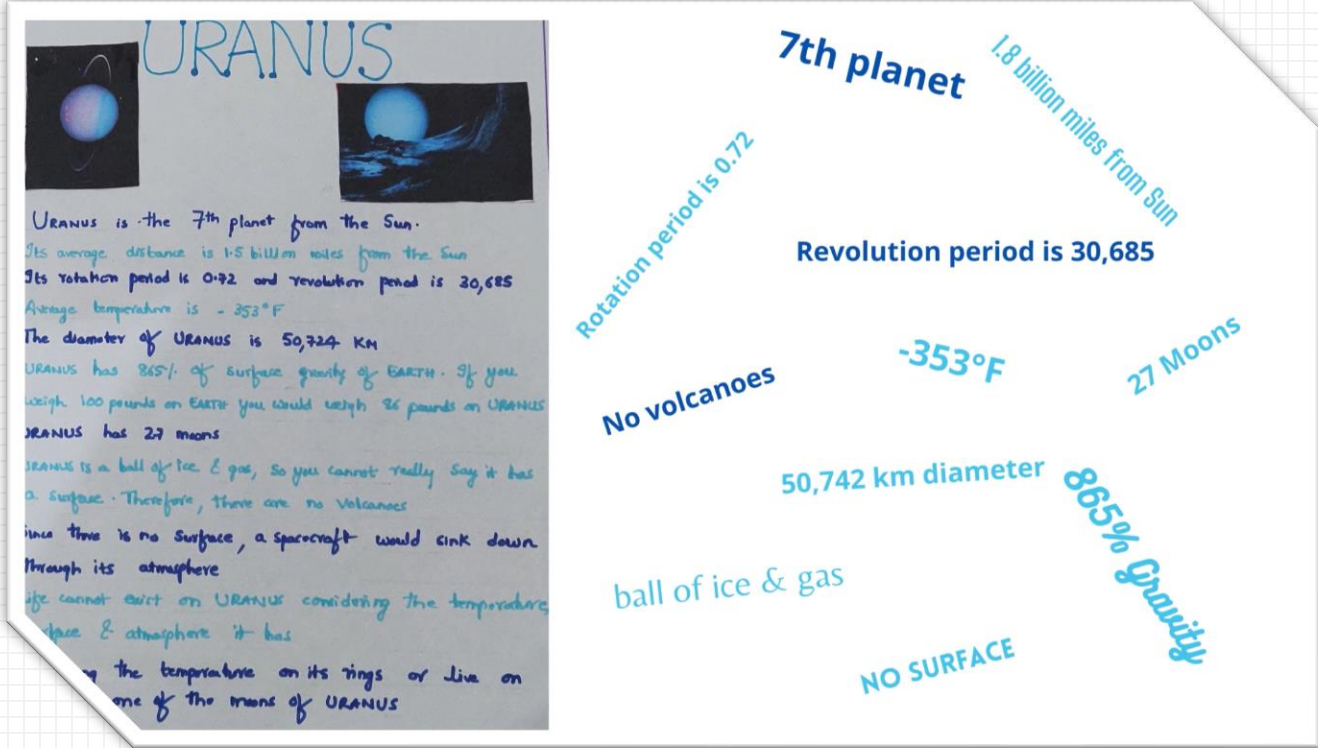 URANUS
URANUS is the 7th planet from the Sun.
Its average distance is 1.5 billion miles from the Sun
Its rotation period is 0.72 and revolution period is 30,685
Average temperature is - 353°F
The diameter of URANUS is 50,724 KM
URANUS has 865% of surface gravity of EARTH. If you
weigh 100 pounds on EARTH you would weigh 86 pounds on URANUS
URANUS has 27 moons
URANUS is a ball of ice & gas, so you cannot really say it has
a surface. Therefore, there are no Volcanoes
since there is no Surface, a spacecraft would sink down
through its atmosphere
life cannot exist on URANUS considering the temperature,
& atmosphere it has
the temperature on its rings or live on
one of the moons of URANUS
7th planet
1.8 billion miles from Sun
Rotation period is 0.72
Revolution period is 30,685
-353°F
27 Moons
No volcanoes
50,742 km diameter
865% Gravity
ball of ice & gas
NO SURFACE